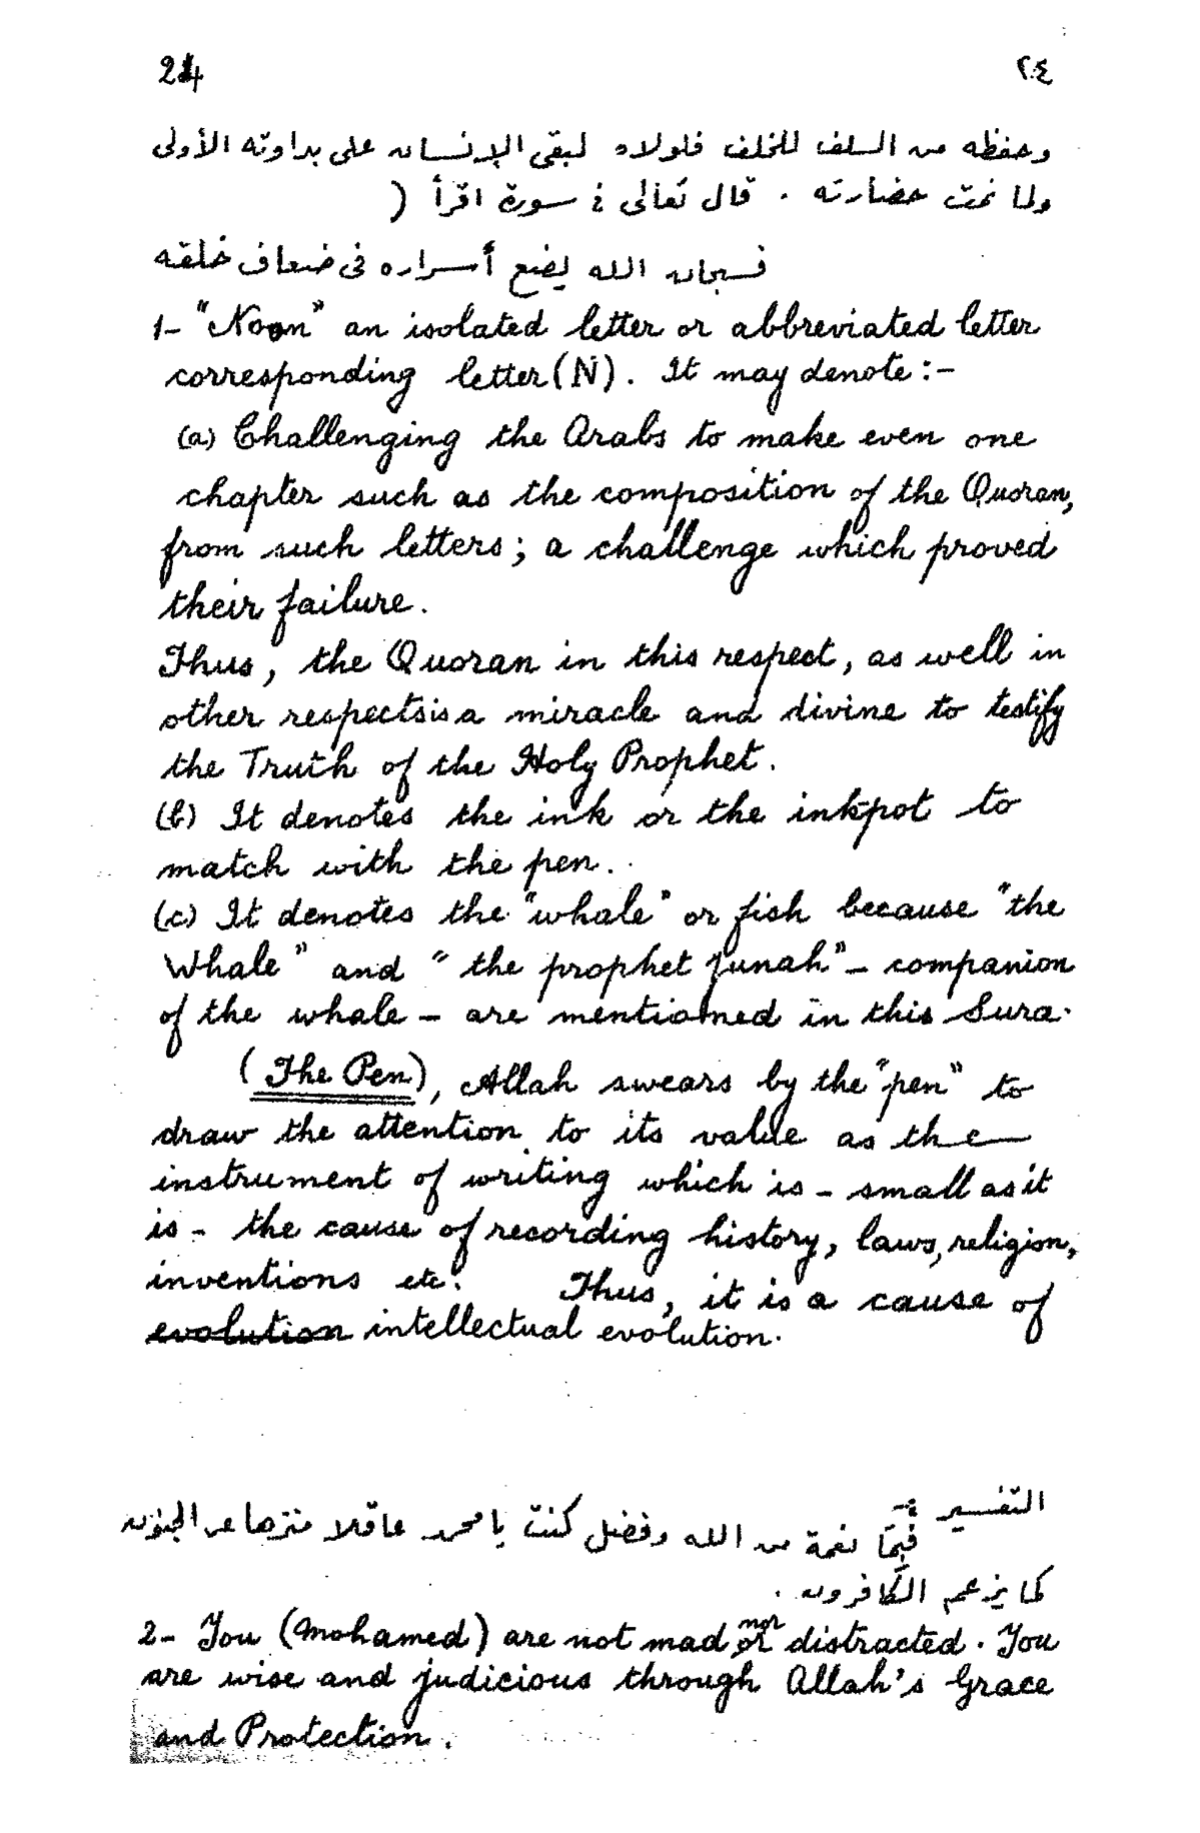 24 ٢٤
وحفظه من السلف للخلف فلولاه لبقى الإنسان على بداوته الأولى
ولما نمت حضارته . قال تعالى فى سورة اقرأ (
فسبحان الله يضع أسراره فى ضعاف خلقه
1- "Noon" an isolated letter or abbreviated letter
corresponding letter (N). It may denote :-
(a) Challenging the Arabs to make even one
chapter such as the composition of the Quoran,
from such letters; a challenge which proved
their failure.
Thus, the Quoran in this respect, as well in
other respects is a miracle and divine to testify
the Truth of the Holy Prophet.
(b) It denotes the ink or the inkpot to
match with the pen.
(c) It denotes the "whale" or fish because "the
Whale" and "the prophet Junah" - companion
of the whale - are mentioned in this Sura.
(The Pen), Allah swears by the "pen" to
draw the attention to its value as the
instrument of writing which is - small as it
is - the cause of recording history, laws, religion,
inventions etc. Thus, it is a cause of
evolution intellectual evolution.
التفسير :-
فبما نعمة من الله وفضل كنت يا محمد عاقلا منزها عن الجنون
كما يزعم الكافرون .
2- You (Mohamed) are not mad nor distracted. You
are wise and judicious through Allah's Grace
and Protection.